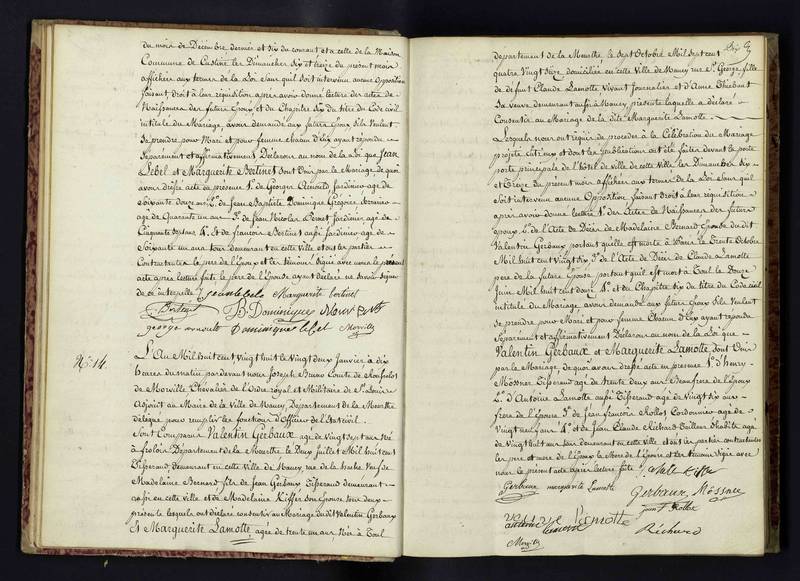 du mois de Décembre dernier et six du courant et a celle de la Maison
Commune de Custine les Dimanches Six et treize du présent mois
affichées aux termes de la Loi sans qu'il soit intervenu aucune Opposition
faisant droit à leur réquisition après avoir donné lecture des actes de
Naissances des futurs Epoux et du Chapitre Six du titre du Code civil
intitulé du Mariage, avons demandé aux futurs Epoux s'ils Veulent
Se prendre pour Mari et pour femme chacun d'Eux ayant répondu
Séparément et affirmativement Déclarons au nom de la Loi que Jean
Lebel et Marguerite Bertinet Sont Unis par le Mariage de quoi
avons dressé acte en présence 1° de Georges Arnould Jardinier agé de
Soixante douze ans 2° de Jean Baptiste Dominique Grégoire
agé de Quarante un ans 3° de Jean Nicolas Jardinier agé de
Cinquante Sept ans 4° et de françois Bertinet aussi Jardinier agé de
Soixante un ans tous demeurant en cette Ville et ont les parties
Contractantes le père de l'Epoux et les témoins Signé avec nous le présent
acte après lecture faite le père de l'Epouse ayant déclaré ne savoir signer
de ce interpellé / jean lebele Marguerite bertinet
Dominique
george arnoult Dominique lebel Morville
N°. 14.
L'An Mil huit cent Vingt huit le Vingt deux Janvier à dix
heures du matin par devant nous Joseph Bruno Comte de
de Morville Chevalier de l'Ordre royal et Militaire de St Louis
Adjoint au Maire de la Ville de Nancy Département de la Meurthe
délégué pour remplir les fonctions d'Officier de l'Etat civil.
Sont Comparus Valentin Gerbaux agé de Vingt Sept ans Né
à frolois Département de la Meurthe le Deux Juillet Mil huit cent
Tisserand demeurant en cette Ville de Nancy, rue fils de
Madelaine Bernard fils de Jean Gerbaux Tisserand demeurant
aussi en cette ville et de Madelaine Kiffer son Epouse tous deux
présents lesquels ont déclaré consentir au Mariage dudit Valentin Gerbaux
Et Marguerite Lamotte agée de trente un ans, Née à Toul
département de la Meurthe le Sept Octobre Mil Sept cent
quatre Vingt Seize domiciliée en cette Ville de Nancy rue St George, fille
de defunt Claude Lamotte Vivant Journalier et d'Anne Thiebaut
Sa veuve demeurant aussi à Nancy présente laquelle a déclaré
Consentir au Mariage de la dite Marguerite Lamotte.
Lesquels nous ont requis de procéder à la Célébration du Mariage
projeté entr'eux et dont les publications ont été faites devant la porte
porte principale de l'hôtel de ville de cette Ville les Dimanches Six
et Treize du présent mois affichées aux termes de la Loi Sans qu'il
soit intervenu aucune Opposition faisant droit à leur réquisition
après avoir donné lecture 1° des Actes de Naissances des futurs
Epoux 2° de l'Acte de Décès de Madelaine Bernard Epouse dudit
Valentin Gerbaux portant quelle est morte à le trente Octobre
Mil huit cent Vingt Six 3° de l'Acte de Décès de Claude Lamotte
père de la future Epouse portant qu'il est mort à Toul le Douze
Juin Mil huit cent douze 4° et du Chapitre Six du titre du Code civil
intitulé du Mariage, avons demandé aux futurs Epoux s'ils Veulent
Se prendre pour Mari et pour femme Chacun d'Eux ayant répondu
Séparément et affirmativement Déclarons au nom de la Loi que
Valentin Gerbaux et Marguerite Lamotte, sont Unis
par le Mariage de quoi avons dressé acte en présence 1° d'henry
Mossner Tisserand agé de trente deux ans Beaufrere de l'Epoux
2° d'Antoine Lamotte aussi Tisserand agé de Vingt Six ans
frere de l'Epouse 3° de Jean françois Rollot Cordonnier agé de
Vingt neuf ans 4° et de Jean Claude Richard Tailleur d'habits agé
de Vingt huit ans tous demeurant en cette Ville et ont les parties contractantes
les père et mere de l'Epoux la Mere de l'Epouse et les témoins Signé avec
nous le présent acte après lecture faite / Kiffer
Gerbaux marguerite Lamotte Gerbaux Mössner
lamotte Rollot
Morville Richard